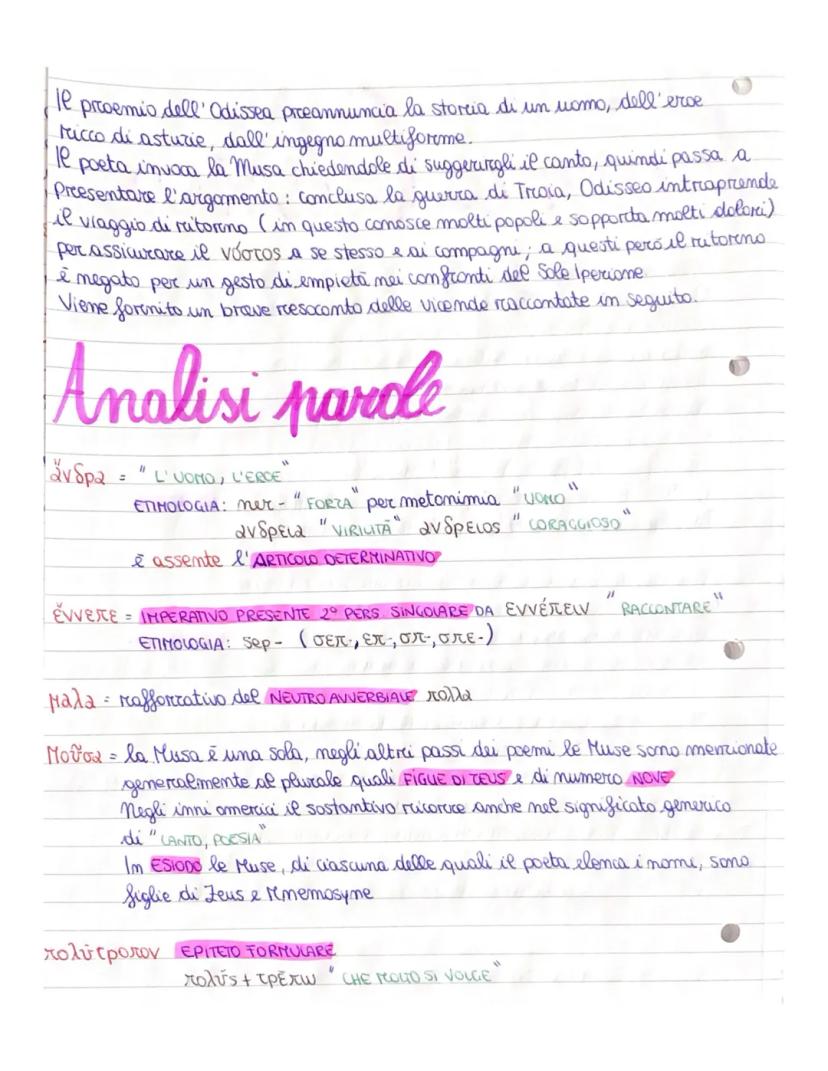 Il proemio dell'Odissea preannuncia la storia di un uomo, dell'eroe
ricco di astuzie, dall'ingegno multiforme.
Il poeta invoca la Musa chiedendole di suggerirgli il canto, quindi passa a
presentare l'argomento: conclusa la guerra di Troia, Odisseo intraprende
il viaggio di ritorno (in questo conosce molti popoli e sopporta molti dolori)
per assicurare il νόστος a se stesso e ai compagni; a questi però il ritorno
è negato per un gesto di empietà nei confronti del Sole Iperione.
Viene fornito un breve resoconto delle vicende raccontate in seguito.
Analisi parole
ἄνδρα = "L'UOMO, L'EROE"
ETIMOLOGIA: ner- "FORZA" per metonimia "UOMO"
ανδρεια "VIRILITÀ" ανδρειος "CORAGGIOSO"
è assente l'ARTICOLO DETERMINATIVO
ἔννεπε = IMPERATIVO PRESENTE 2° PERS SINGOLARE DA εννέπειν "RACCONTARE"
ETIMOLOGIA: sep- (σεπ-, επ-, σπ-, σπε-)
μαλα = rafforzativo del NEUTRO AVVERBIALE πολλα
Μοῦσα = la Musa è una sola, negli altri passi dei poemi le Muse sono menzionate
generalmente al plurale quali FIGLIE DI ZEUS e di numero NOVE
Negli inni omerici il sostantivo ricorre anche nel significato generico
di "CANTO, POESIA"
In ESIODO le Muse, di ciascuna delle quali il poeta elenca i nomi, sono
figlie di Zeus e Mnemosyne
πολύτροπον EPITETO FORMULARE
πολύς + τρέπω "CHE MOLTO SI VOLGE"